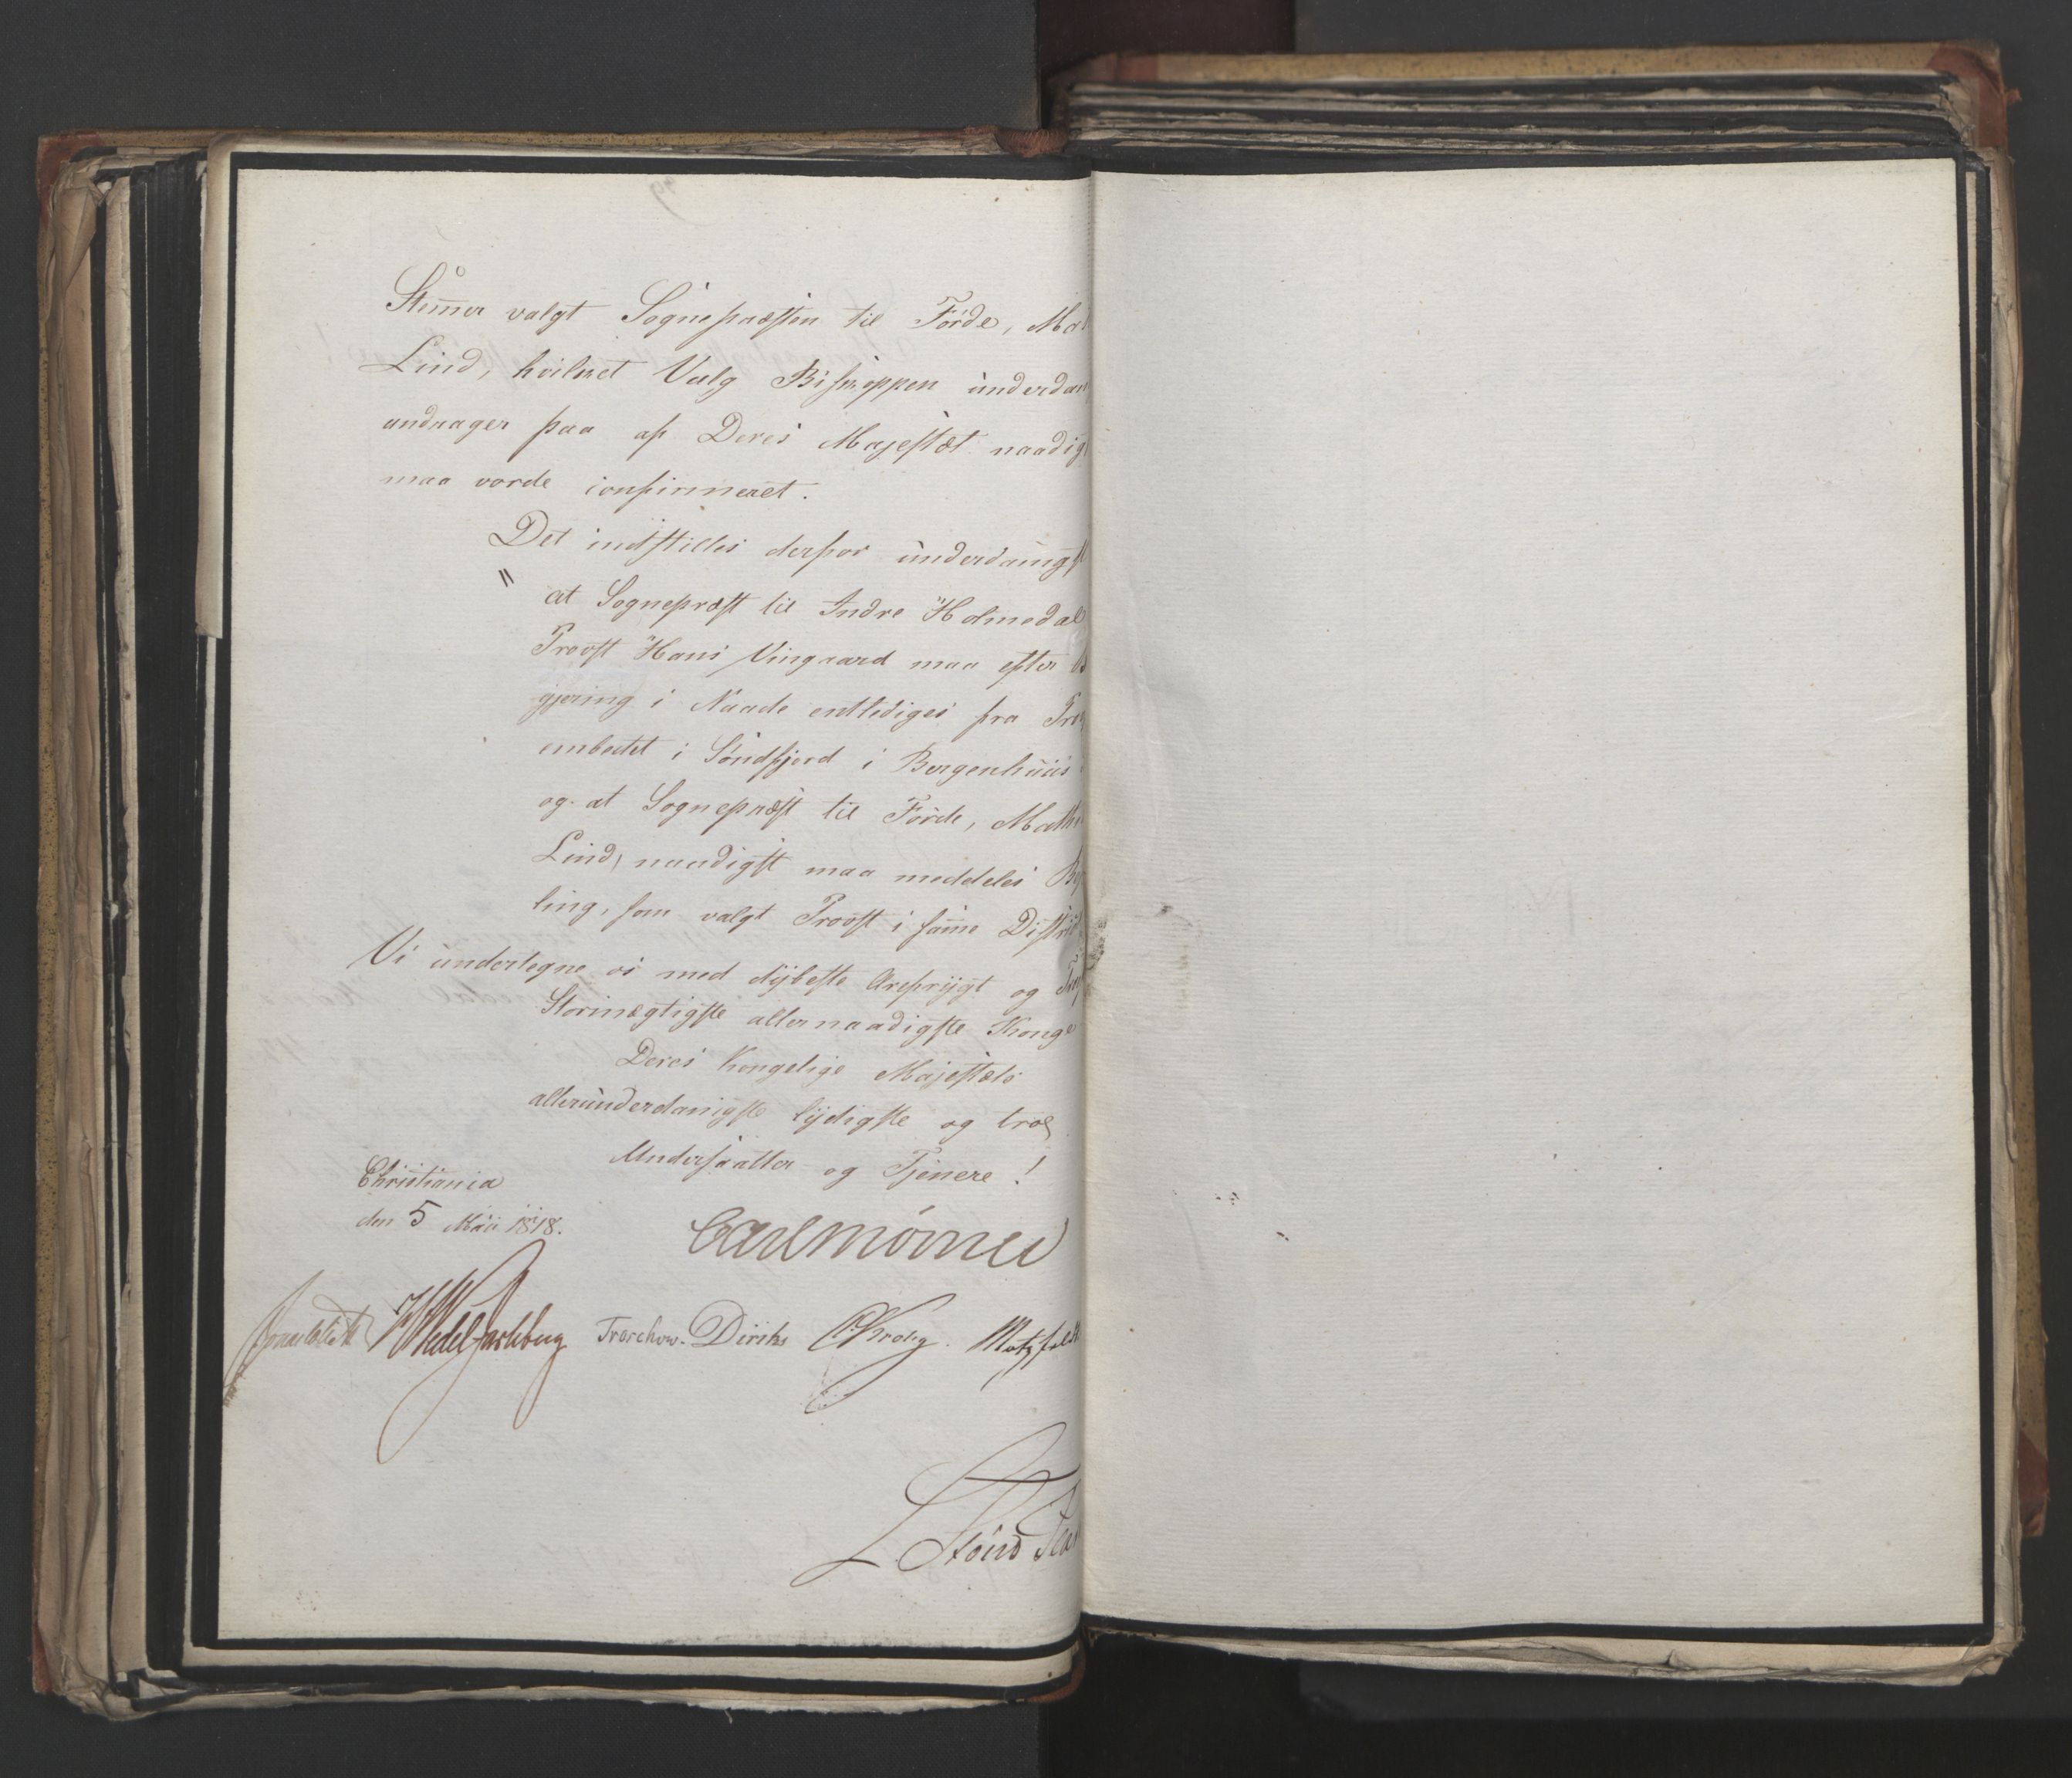 Stem̄er valgt Sognepræsten til Förde, Mat
Lind, hvilket Valg Biskoppen underdan
andrager paa af Deres Majestæt naadig
maa vorde confirmeret.
Det indstilles derfor underdanigst
" at Sognepræst til Indre Holmedal
Provst Hans Vingaard maa efter
gjering i Naade entlediges fra Pro
embedet i Söndfjord i Bergenhuus
og at Sognepræst til Förde, Math
Lind, naadigst maa meddeles
ling, som valgt Provst i sam̄e Distri
Vi undertegne os med dybeste Ærefrygt og
Stormægtigste allernaadigste Konge
Deres Kongelige Majestæts
allerunderdanigste lydigste og troe
Undersaatter og Tjenere!
Christiania
den 5 Maii 1818.
Carl Mörner
Sommerhielm HWedel Jarlsberg Treschow. Diriks Krohg. Motzfeldt
L. Stoud Plat